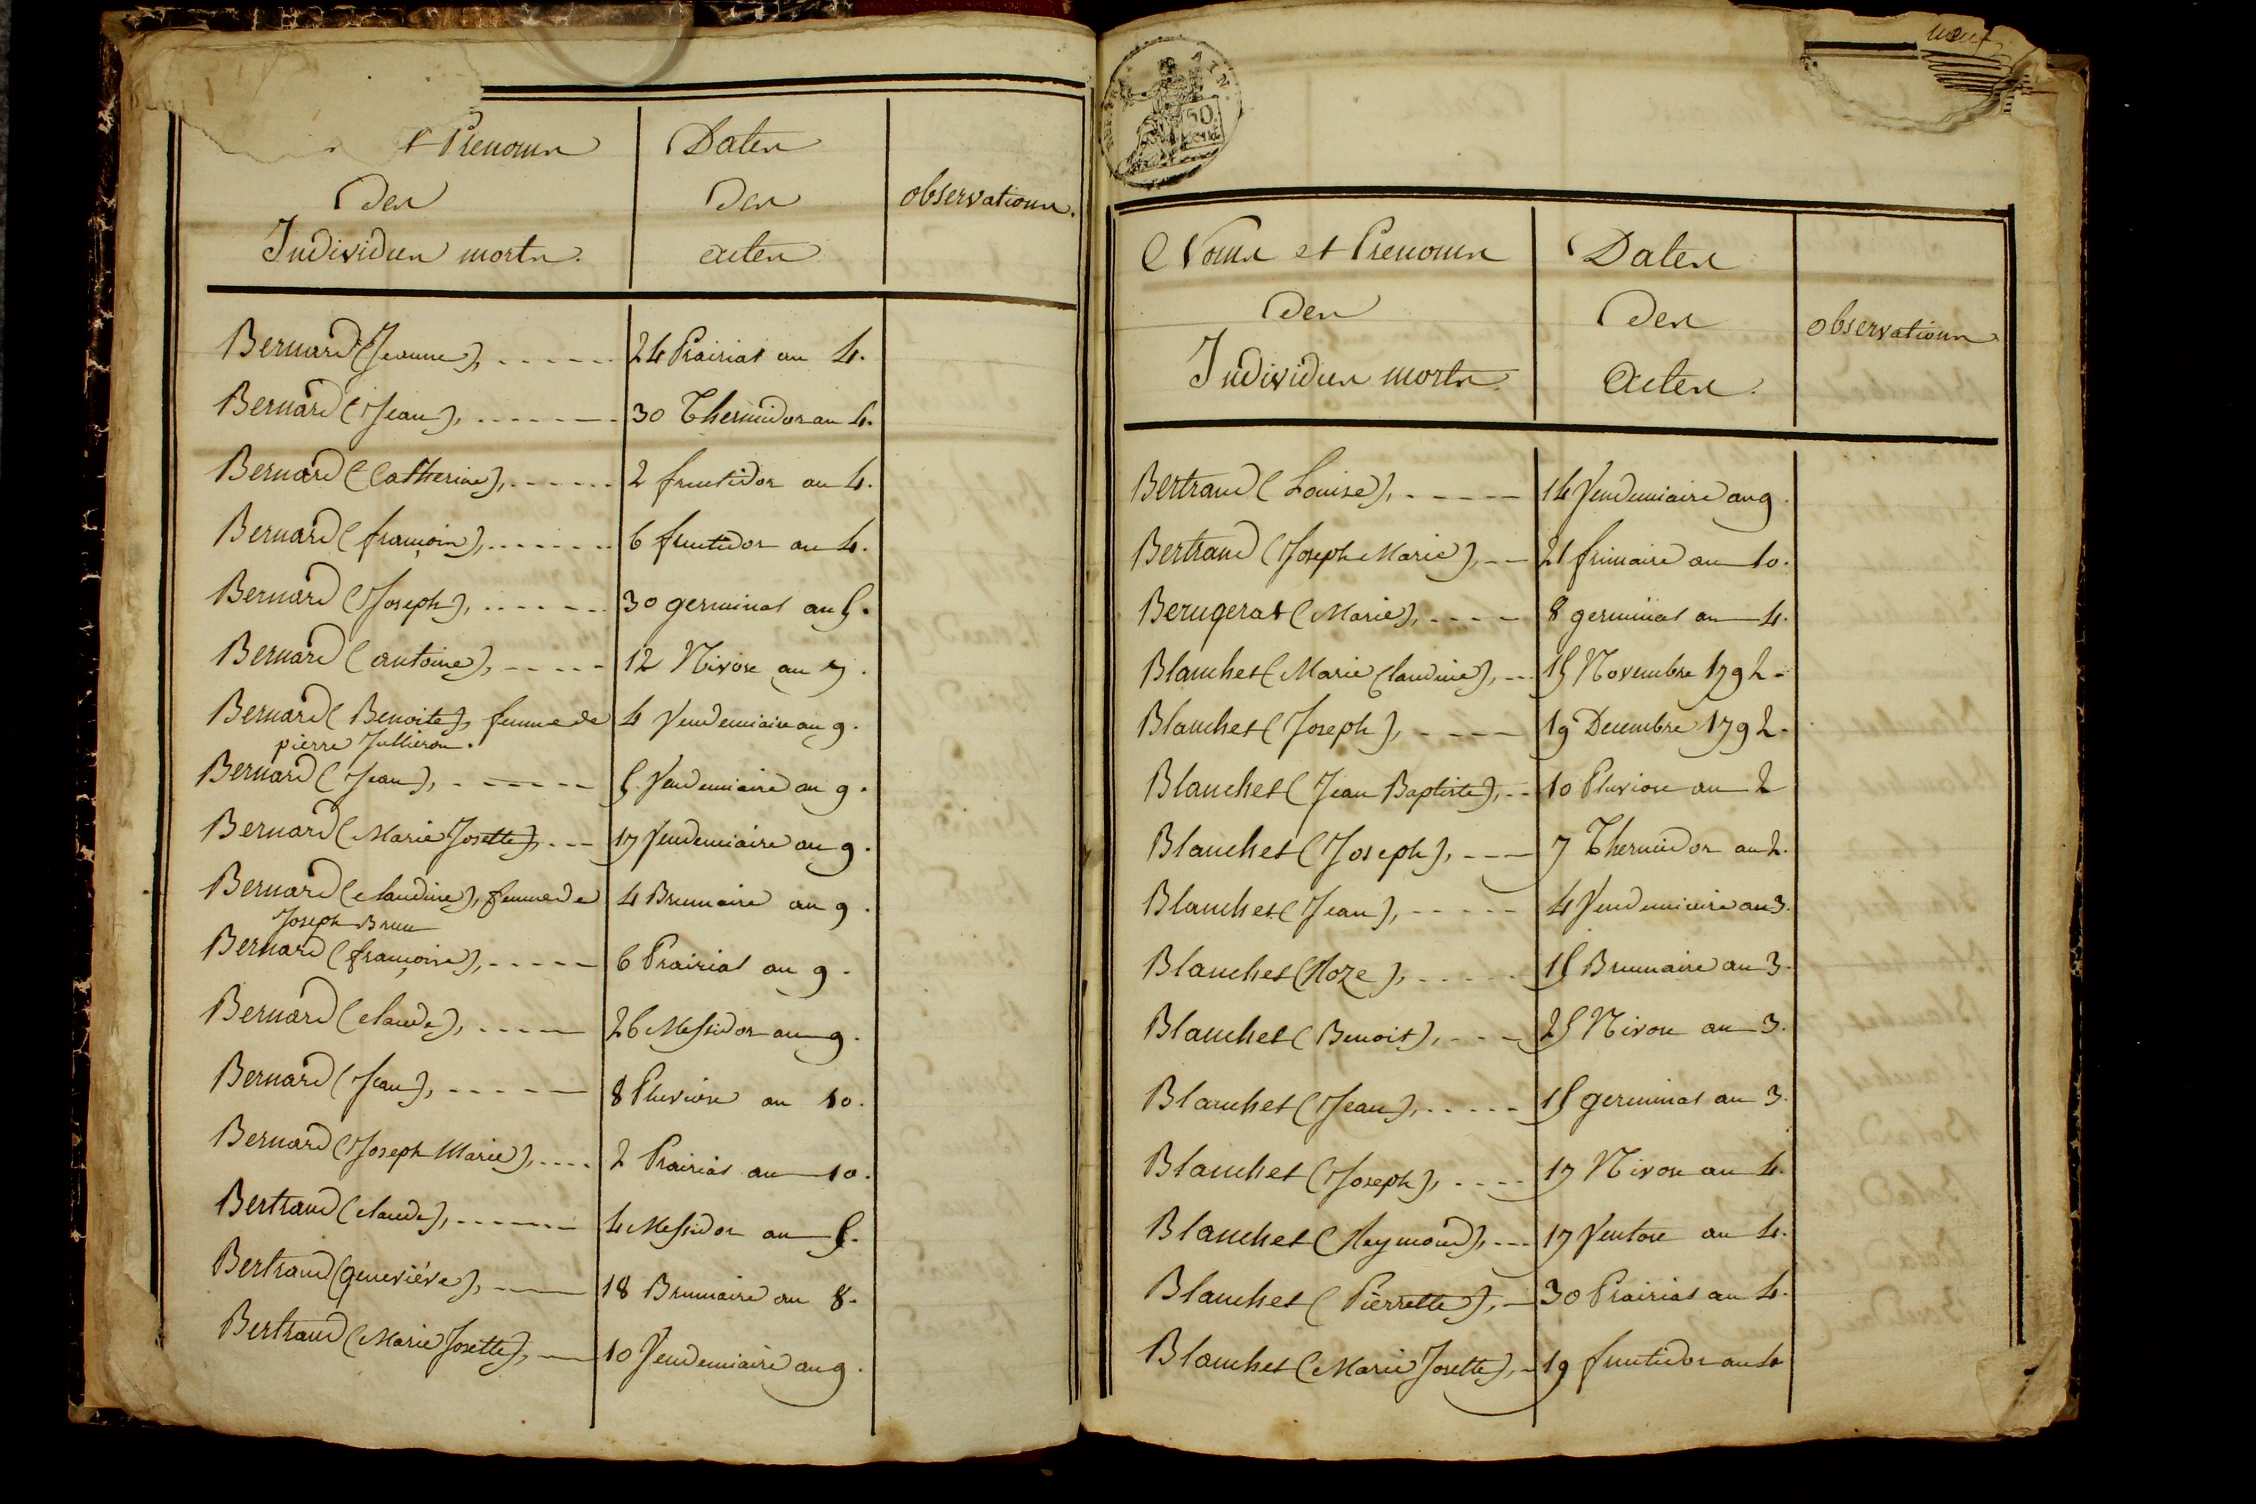 et Prenoms
des
Individus morts.
Dates
des
actes
observations.
Bernard (Jeanne), 24 Prairial an 4.
Bernard (Jean), 30 Thermidor an 4.
Bernard (Catherine), 2 fructidor an 4.
Bernard (françois), 6 fructidor an 4.
Bernard (Joseph), 30 germinal an 5.
Bernard (antoine), 12 Nivose an 7.
Bernard (Benoite), femme de 4 Vendemiaire an 9.
pierre Jullieron.
Bernard (Jean), 5 Vendemiaire an 9.
Bernard (Marie Josette), 17 Vendemiaire an 9.
Bernard (claudine), femme de 4 Brumaire an 9.
Joseph Brun
Bernard (françoise), 6 Prairial an 9.
Bernard (claude), 26 Messidor an 9.
Bernard (Jean), 8 Pluviose an 10.
Bernard (Joseph Marie), 2 Prairial an 10.
Bertrand (claude), 4 Messidor an 5.
Bertrand (geneviéve), 18 Brumaire an 8.
Bertrand (Marie Josette), 10 Vendemiaire an 9.
neuf
50
Noms et Prenoms
des
Individus morts
Dates
des
Actes.
observations
Bertrand (Louise), 14 Vendemiaire an 9.
Bertrand (Joseph Marie), 21 frimaire an 10.
Berugerat (Marie), 8 germinal an 4.
Blanchet (Marie Claudine), 15 Novembre 1792.
Blanchet (Joseph), 19 Decembre 1792.
Blanchet (Jean Baptiste), 10 Pluviose an 2
Blanchet (Joseph), 7 Thermidor an 2.
Blanchet (Jean), 4 Vendemiaire an 3.
Blanchet (Roze), 15 Brumaire an 3.
Blanchet (Benoit), 25 Nivose an 3.
Blanchet (Jean), 15 germinal an 3.
Blanchet (Joseph), 17 Nivose an 4.
Blanchet (Reymond), 17 Ventose an 4.
Blanchet (Pierrette), 30 Prairial an 4.
Blanchet (Marie Josette), 19 fructidor an 4